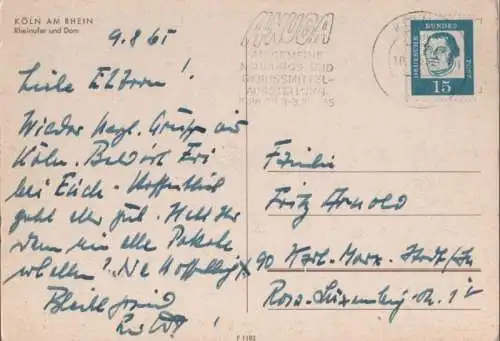 KÖLN AM RHEIN
Rheinufer und Dom
9.8.65
Liebe Eltern!
Wieder herzl. Grüße aus
Köln.
bei Euch. Hoffentlich
geht alles gut. Habt Ihr
denn nun alle Pakete
erhalten?
Bleibt gesund
ANUGA
ALLGEMEINE
NAHRUNGS UND
GENUSSMITTEL-
AUSSTELLUNG
DEUTSCHE BUNDESPOST
15
Familie
Fritz Arnold
X 90 Karl-Marx-Stadt/Sa
Rosa-Luxemburg-Str.
F 1192